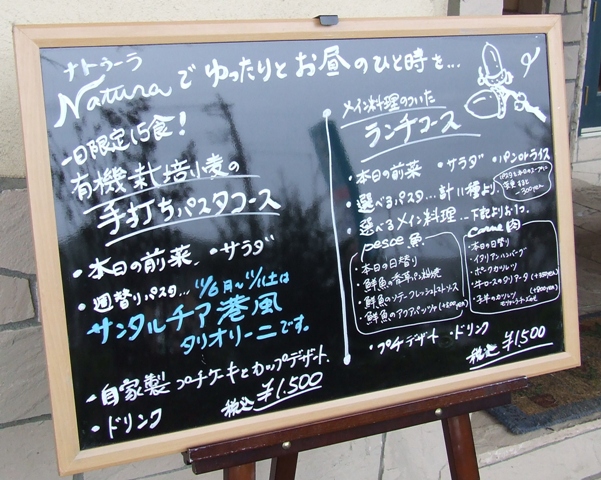 ナトゥーラ
Naturaで ゆったりと お昼のひと時を...
一日限定15食!
有機栽培小麦の
手打ちパスタコース
・本日の前菜、・サラダ
・週替りパスタ... 11/6月〜11/11土は
サンタルチア港風
タリオリーニです。
・自家製 プチケーキとカップデザート、
・ドリンク
税込 ¥1,500
メイン料理のついた
ランチコース
・本日の前菜 ・サラダ ・パンorライス
・選べるパスタ...計11種より、
・選べるメイン料理...下記よりお1つ。
pesce 魚
・本日の日替り
・鮮魚の香草パン粉焼
・鮮魚のソテーフレッシュトマトソース
・鮮魚のアクアパッツァ(+200yen)
carne 肉
・本日の日替り
・イタリアンハンバーグ
・ポークカツレツ
・牛ロースのタリアータ
・プチデザート ・ドリンク
税込 ¥1,500